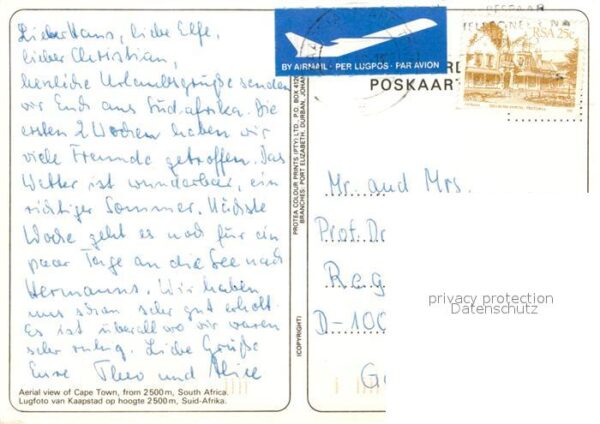 Lieber Hans, liebe Elfe,
lieber Christian,
herzliche Urlaubsgrüße senden
wir Euch aus Südafrika. Die
ersten 2 Wochen haben wir
viele Freunde getroffen. Das
Wetter ist wunderbar, ein
richtiger Sommer. Nächste
Woche geht es noch für ein
paar Tage an die See nach
Hermanus. Wir haben
uns schon sehr gut erholt.
Es ist überall wo wir waren
sehr ruhig. Liebe Grüße
Eure Theo und Alice
Aerial view of Cape Town, from 2500m, South Africa.
Lugfoto van Kaapstad op hoogte 2500m, Suid-Afrika.
(COPYRIGHT)
PROTEA COLOUR PRINTS (PTY) LTD., P.O. BOX
BRANCHES: PORT ELIZABETH, DURBAN,
BY AIRMAIL · PER LUGPOS · PAR AVION
RSA 25c
POSKAART
Mr. and Mrs.
Prof. Dr
Reg
D-100
privacy protection
Datenschutz